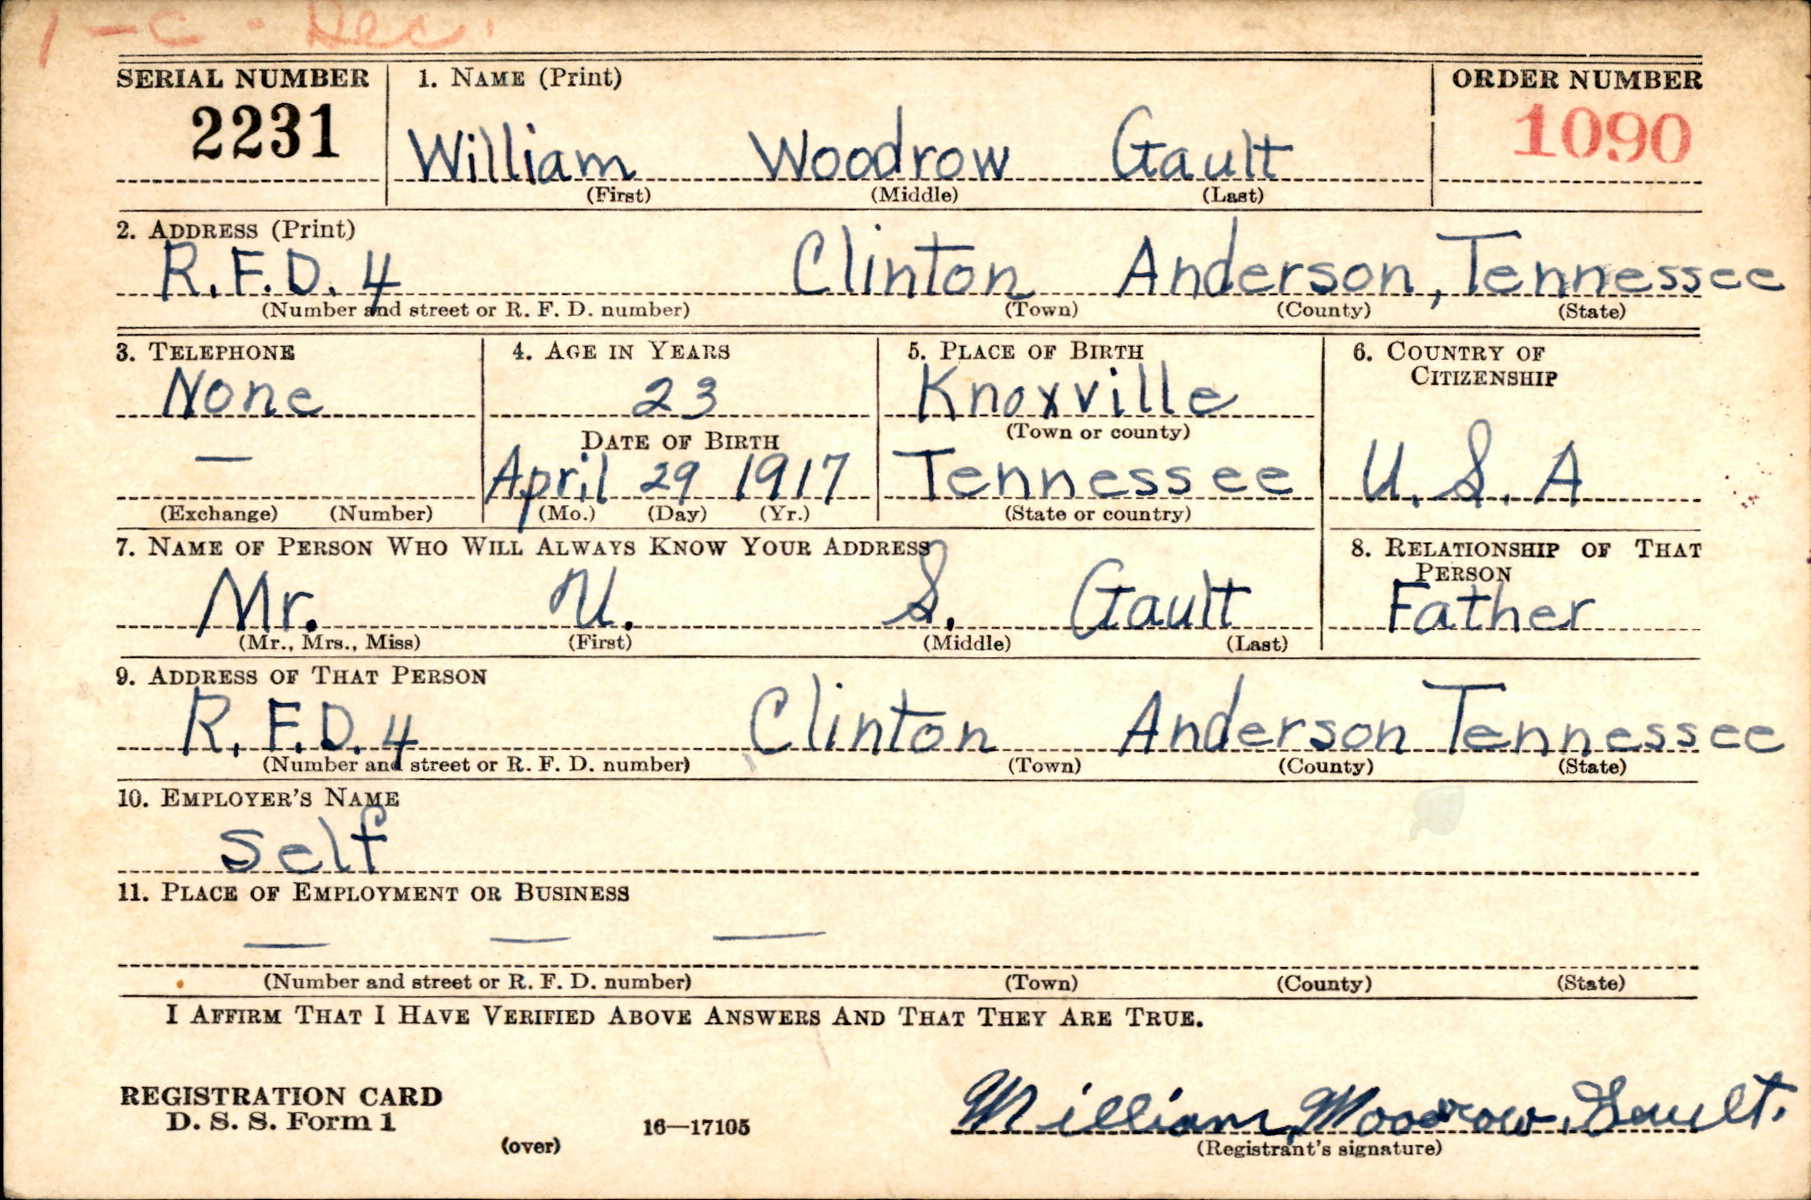 1-C - Dec.
SERIAL NUMBER 1. NAME (Print) ORDER NUMBER
2231 William Woodrow Gault 1090
(First) (Middle) (Last)
2. ADDRESS (Print)
R.F.D. 4 Clinton Anderson, Tennessee
(Number and street or R. F. D. number) (Town) (County) (State)
3. TELEPHONE 4. AGE IN YEARS 5. PLACE OF BIRTH 6. COUNTRY OF
CITIZENSHIP
None 23 Knoxville
DATE OF BIRTH (Town or county)
— April 29 1917 Tennessee U. S. A
(Exchange) (Number) (Mo.) (Day) (Yr.) (State or country)
7. NAME OF PERSON WHO WILL ALWAYS KNOW YOUR ADDRESS 8. RELATIONSHIP OF THAT
PERSON
Mr. U. S. Gault Father
(Mr., Mrs., Miss) (First) (Middle) (Last)
9. ADDRESS OF THAT PERSON
R. F.D. 4 Clinton Anderson Tennessee
(Number and street or R. F. D. number) (Town) (County) (State)
10. EMPLOYER'S NAME
Self
11. PLACE OF EMPLOYMENT OR BUSINESS
— — —
(Number and street or R. F. D. number) (Town) (County) (State)
I AFFIRM THAT I HAVE VERIFIED ABOVE ANSWERS AND THAT THEY ARE TRUE.
REGISTRATION CARD
D. S. S. Form 1
(over) 16—17105 William Woodrow Gault.
(Registrant's signature)